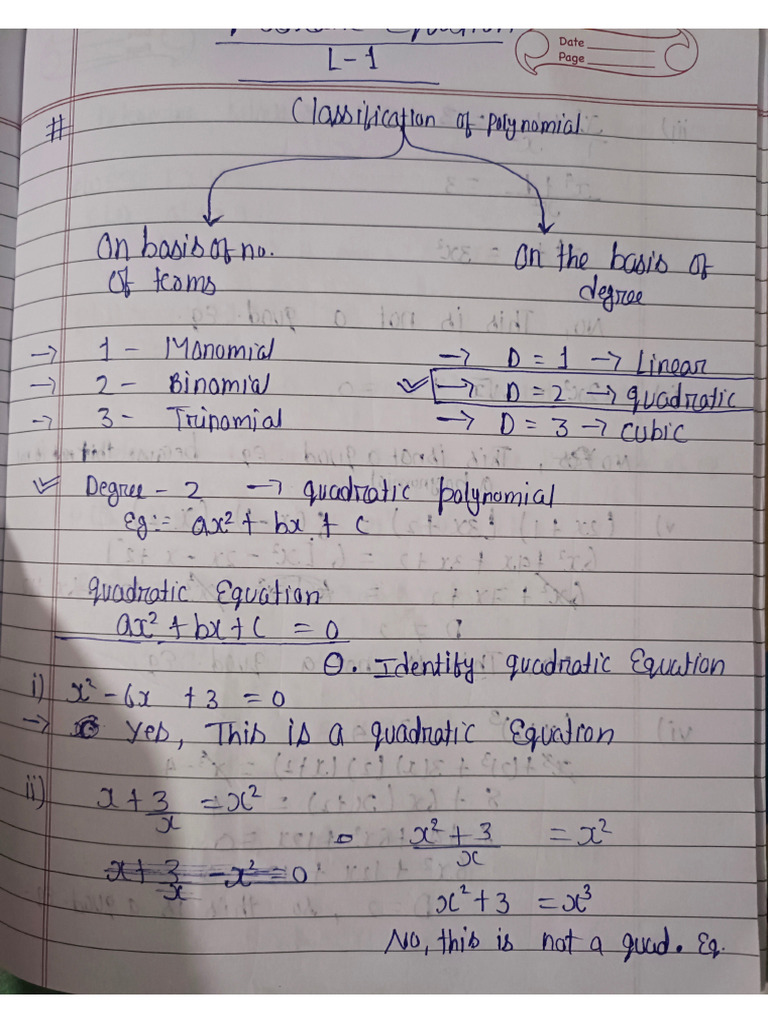 Equation
Date
Page
L-1
# Classification of polynomial
On basis of no.
of terms
On the basis of
degree
→ 1 - Monomial
→ 2 - Binomial
→ 3 - Trinomial
→ D = 1 → Linear
→ D = 2 → quadratic
→ D = 3 → cubic
Degree - 2 → quadratic polynomial
Eg:- ax² + bx + c
quadratic Equation
ax² + bx + c = 0
Q. Identify quadratic Equation
i) x² - 6x + 3 = 0
→ Yes, This is a quadratic Equation
ii) x + 3/x = x²
x + 3/x - x² = 0
x² + 3/x = x²
x² + 3 = x³
No, this is not a quad. Eq.